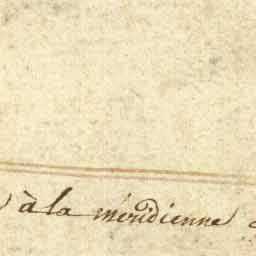 à la méridienne